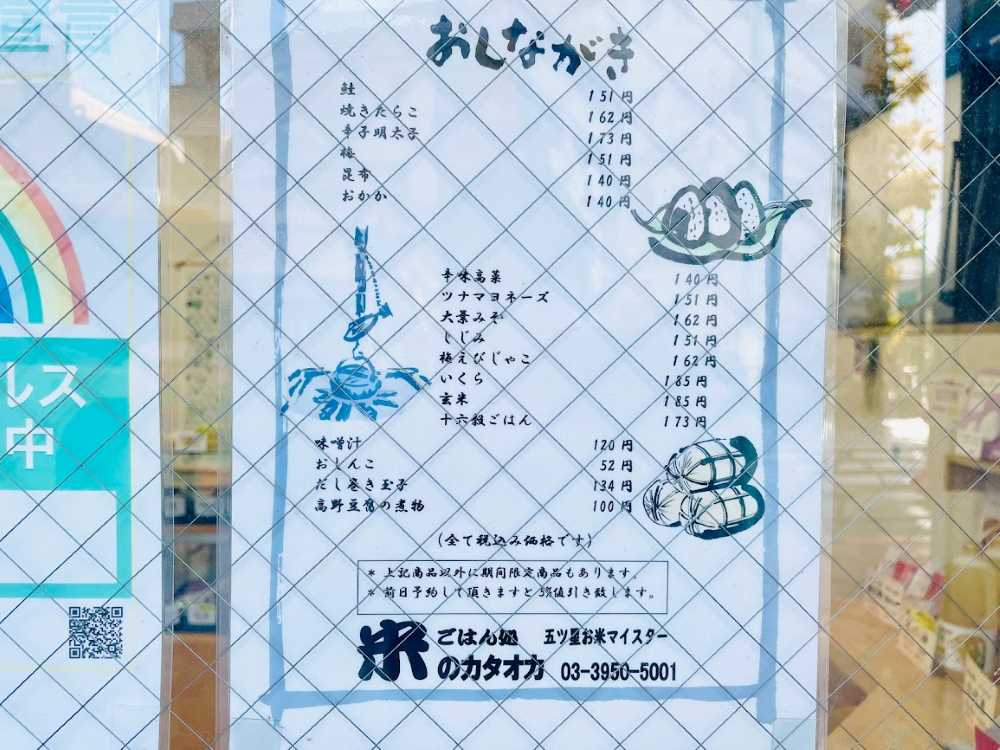 おしながき
鮭 151円
焼きたらこ 162円
辛子明太子 173円
梅 151円
昆布 140円
おかか 140円
辛味高菜 140円
ツナマヨネーズ 151円
大葉みそ 162円
しじみ 151円
梅えびじゃこ 162円
いくら 185円
玄米 185円
十六穀ごはん 173円
味噌汁 120円
おしんこ 52円
だし巻き玉子 134円
高野豆腐の煮物 100円
(全て税込み価格です)
* 上記商品以外に期間限定商品もあります。
* 前日予約して頂きますと5%値引き致します。
米 ごはん処 五ツ星お米マイスター
のカタオカ 03-3950-5001
ルス
中